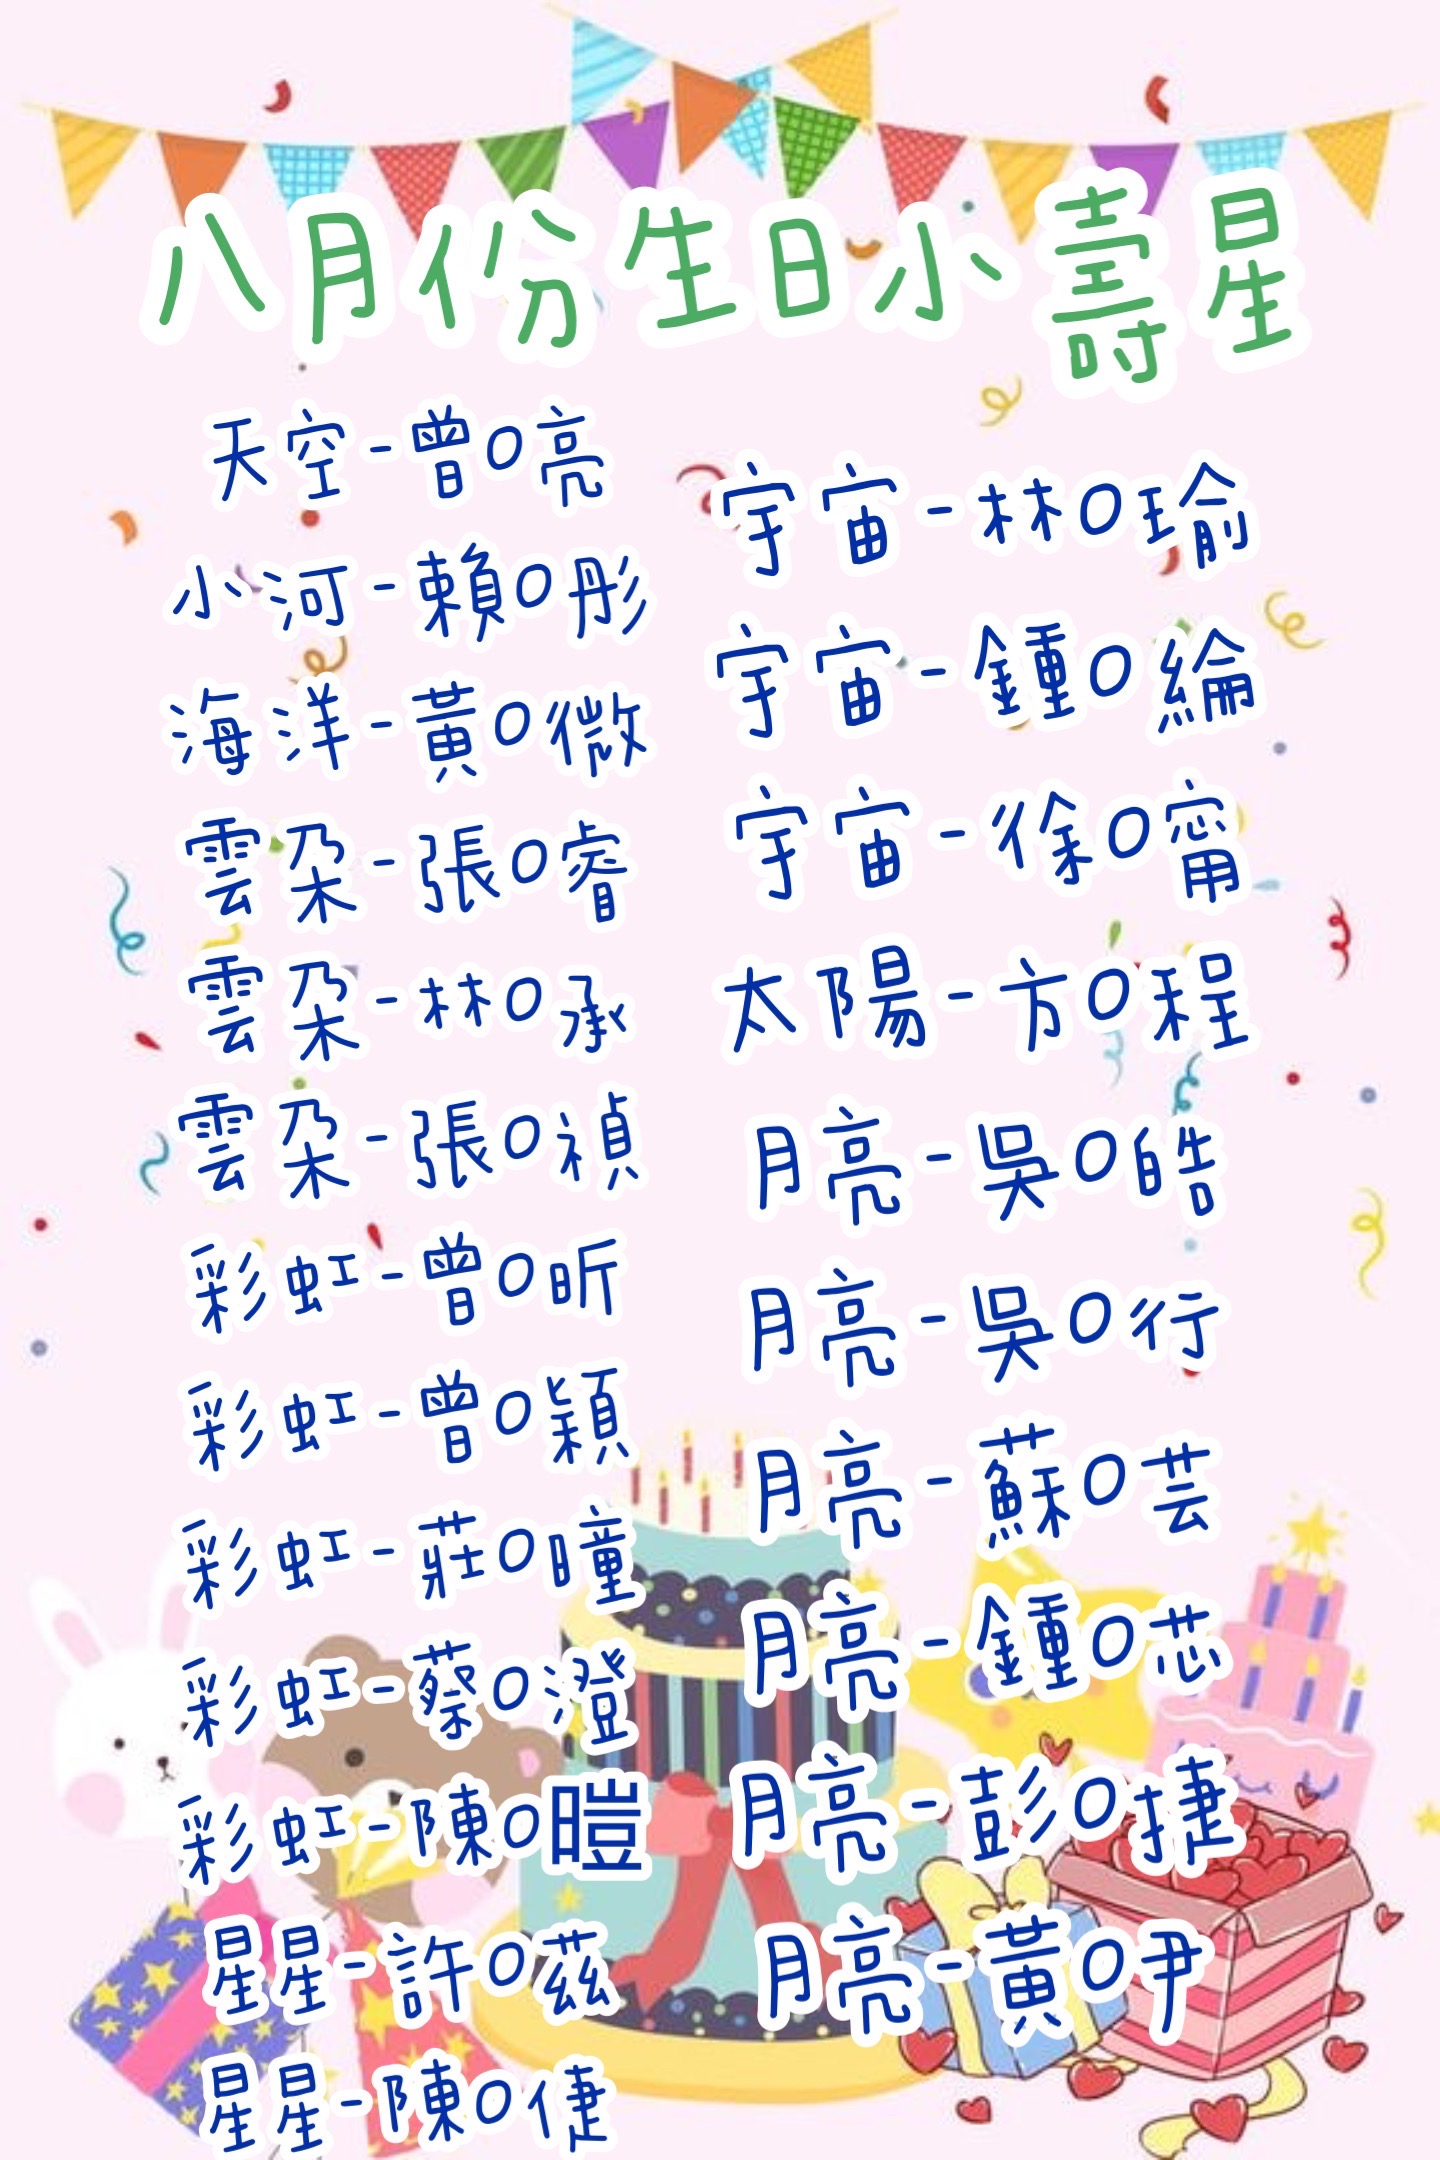 八月份生日小壽星
天空-曾O亮
小河-賴O彤
海洋-黃O微
雲朵-張O睿
雲朵-林O承
雲朵-張O禎
彩虹-曾O昕
彩虹-曾O穎
彩虹-莊O曈
彩虹-蔡O澄
彩虹-陳O暟
星星-許O茲
星星-陳O倢
宇宙-林O瑜
宇宙-鍾O綸
宇宙-徐O甯
太陽-方O程
月亮-吳O皓
月亮-吳O行
月亮-蘇O芸
月亮-鍾O芯
月亮-彭O捷
月亮-黃O尹